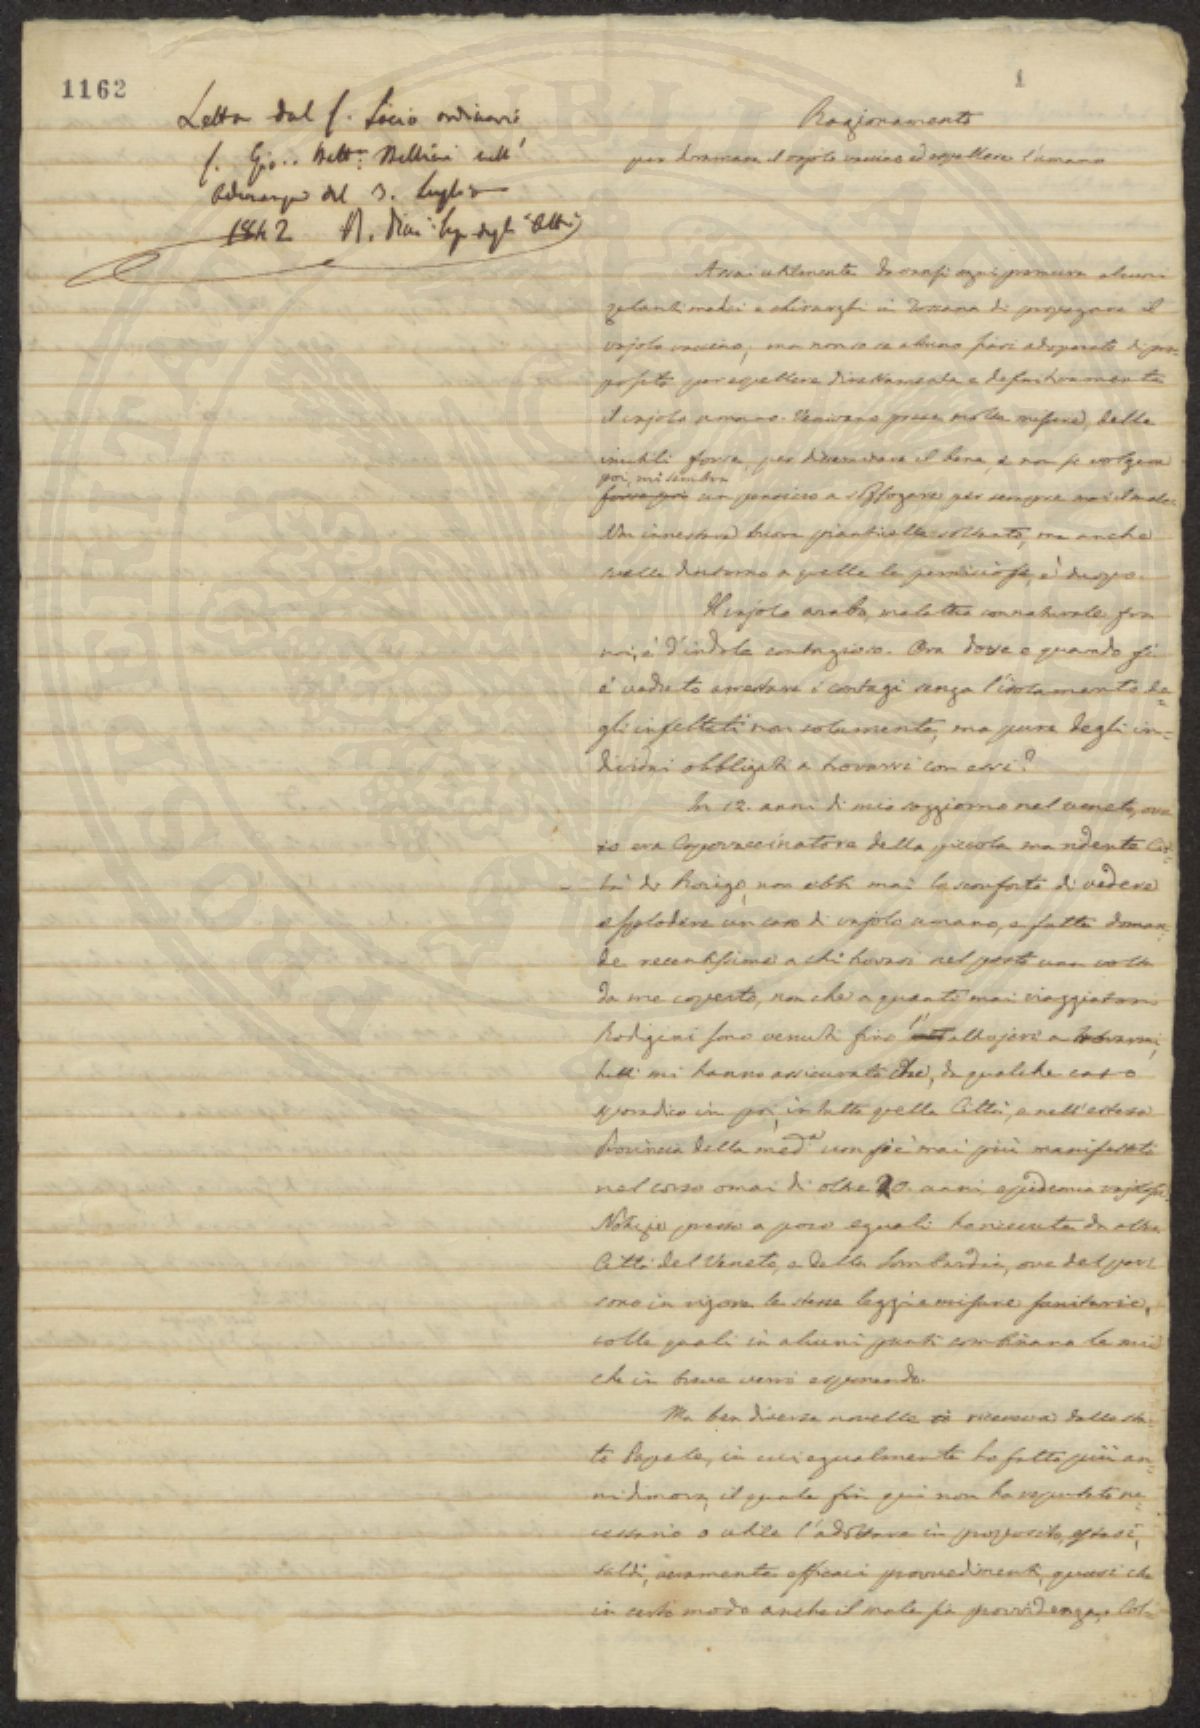 1162
1
Letta dal S. Socio ordinario
S. Gio. Batt. Bellini nell'
Adunanza del 3. Luglio
1842 Seg. degli Atti
Ragionamento
per diramare il vajolo vaccino ed espellere l'umano
Assai utilmente davansi ogni premura alcuni
zelanti medici e chirurghi in Toscana di propagare il
vajolo vaccino; ma non so se alcuno siasi adoperato di pro-
posito per espellere direttamente e definitivamente
il vajolo umano. Venivano prese molte misure, delle
inutili forse, per disseminare il bene, e non si volgeva
poi, mi sembra
forse poi un pensiero a soffogare per sempre mai il male.
Non innestare buone pianticelle soltanto, ma anche
svelle dintorno a quelle le perniciose, è duopo.
Il vajolo arabo, malattia connaturale fra
noi, è d'indole contagioso. Ora dove e quando si
è veduto arrestare i contagi senga l'isolamento de-
gli infettati non solamente, ma pure degli in-
dividui obbligati a trovarsi con essi?
In 12. anni di mio soggiorno nel veneto, ove
io era Capovaccinatore della piccola ma ridente Cit-
tà di Rovigo, non ebbi mai lo sconforto di vedere
esplodere un caso di vajolo umano, e fatte doman-
de recentissime a chi trovasi nel posto una volta
da me coperto, non che a quanti mai viaggiatori
Rodigini sono venuti fino all'ojeri a trovarmi,
tutti mi hanno assicurato che, da qualche caso
sporadico in poi, in tutta quella Città, e nell'estesa
Provincia della med.a non si è mai più manifestata
nel corso omai di oltre 20. anni epidemia vajolosa.
Notizie presso a poco eguali ho ricevute da altre
Città del Veneto, e della Lombardia, ove del pari
sono in vigore le stesse leggi e misure sanitarie,
colle quali in alcuni punti combinano le mie
che in breve verrò esponendo.
Ma ben diverse novelle ricevova dallo sta-
to Papale, in cui egualmente ho fatto più an-
ni dimora, il quale fin qui non ha reputato ne-
cessario o utile l'adottare in proposito, estesi,
saldi, veramente efficaci provvedimenti, quasi che
in certo modo anche il male sia provvidenza. Col-